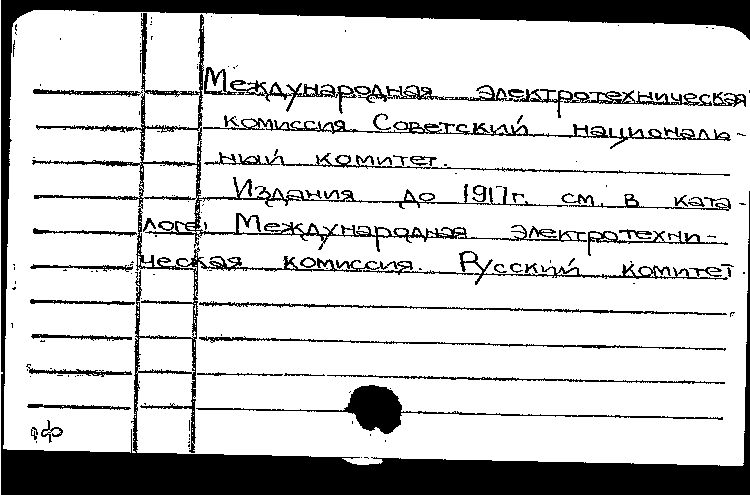 Международная электротехническая
комиссия. Советский националь-
ный комитет.
Издания до 1917г. см. в ката-
логе: Международная электротехни-
ческая комиссия. Русский комитет